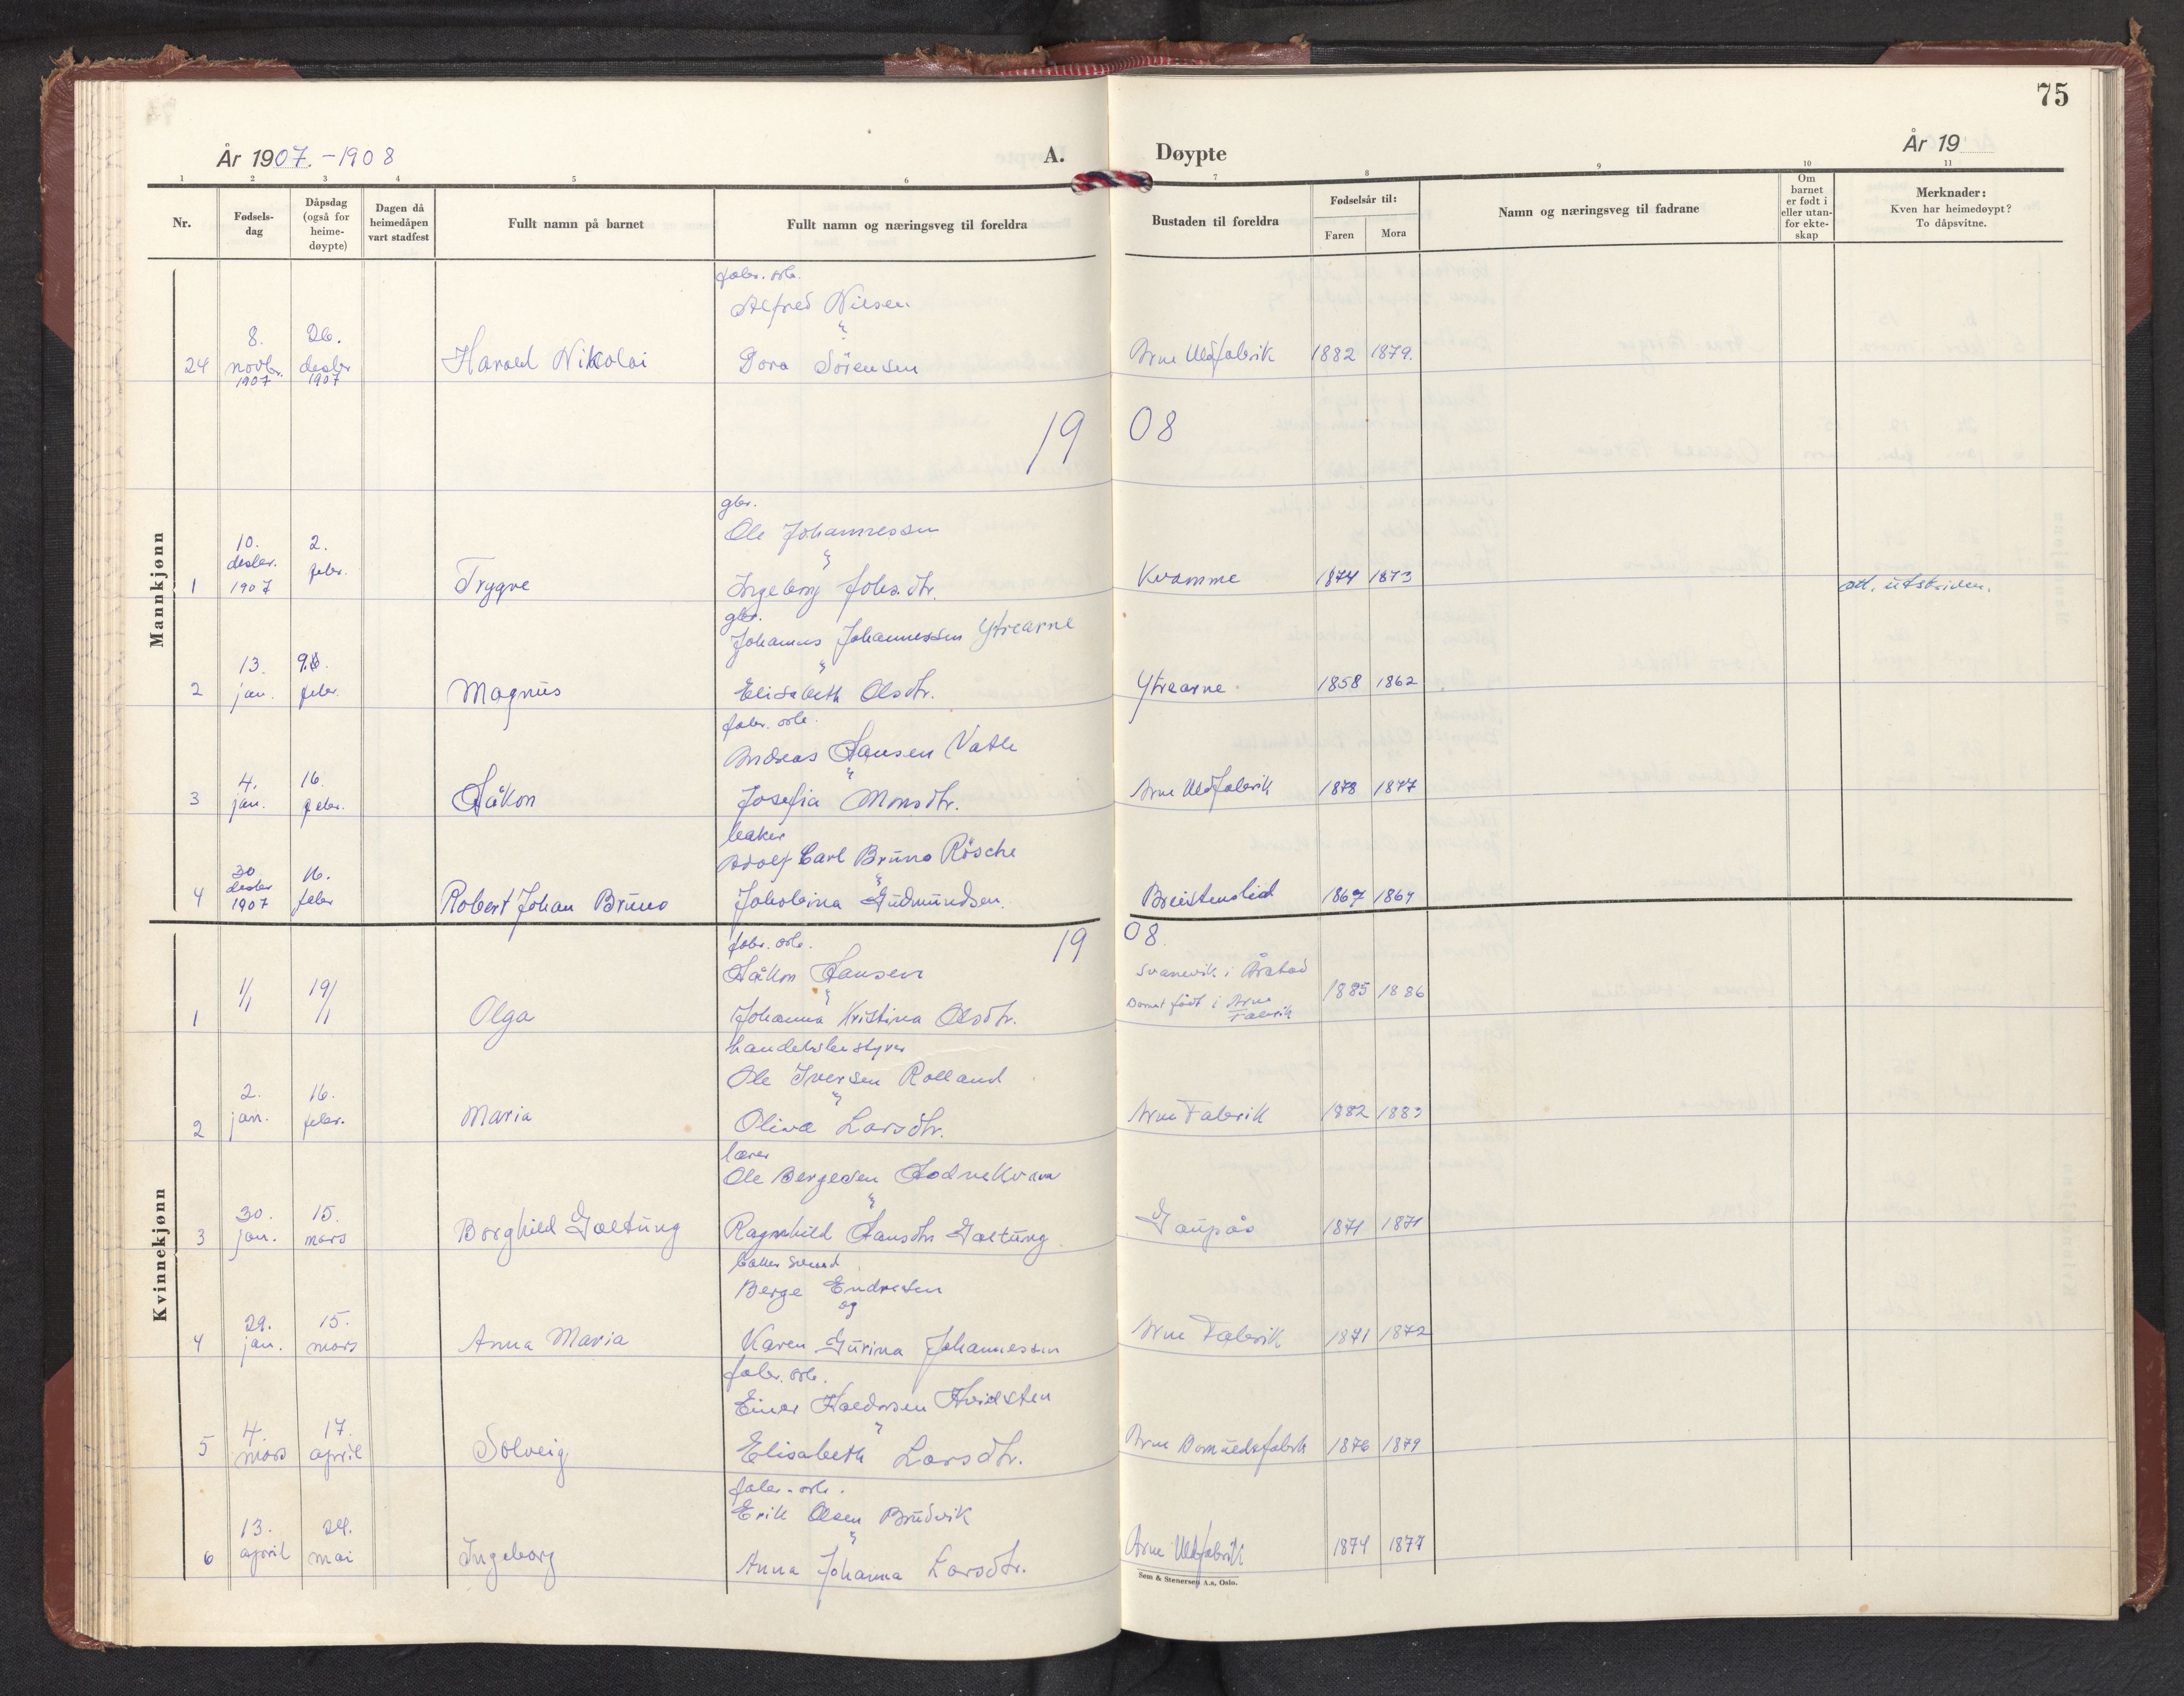 75
År 1907. - 1908
A.
Døypte
År 19
1 2 3 4 5 6 7 8 9 10 11
Nr.
Fødsels-
dag
Dåpsdag
(også for
heime-
døypte)
Dagen då
heimedåpen
vart stadfest
Fullt namn på barnet
Fullt namn og næringsveg til foreldra
Bustaden til foreldra
Fødselsår til:
Faren Mora
Namn og næringsveg til fadrane
Om
barnet
er født i
eller utan-
for ekte-
skap
Merknader:
Kven har heimedøypt?
To dåpsvitne.
Mannkjønn
fabr. arb.
Alfred Nilsen
"
24 8. novbr. 1907 26. desbr 1907 Harald Nikolai Dora Sörensen Arne Uldfabrik 1882 1879.
1908
gbr.
Ole Johannessen
"
1 10. desbr. 1907 2. febr. Trygve Ingeborg Johs.dtr. Kvamme 1874 1873 att. utskriven.
gbr.
Johannes Johannessen Ytrearne
"
2 13. jan. 9. febr. Magnus Elisabeth Olsdtr. Ytrearne 1858 1862
fabr. arb.
Andreas Hansen Vatle
"
3 4. jan. 16. febr. Håkon Josefia Monsdtr. Arne Uldfabrik 1878 1877
baker
Adolf Carl Bruno Rösche
"
4 30 desbr 1907 16. febr Robert Johan Bruno Jakobina Gudmundsen. Breistenslid 1867 1869
Kvinnekjønn
1908.
fabr. arb.
Håkon Hansen
"
1 1/1 19/1 Olga Johanna Kristina Olsdtr. Svanevik i Årstad 1885 1886
Barnet födt i Arne
Fabrik
handelsbestyrer
Ole Iversen Rolland
"
2 2. jan. 16. febr. Maria Oliva Larsdtr. Arne Fabrik 1882 1883
lærer
Ole Bergesen Hodnekvam
"
3 30. jan. 15. mars Borghild Galtung Ragnhild Hansdtr Galtung Gaupås 1871 1871
baker svend
Berge Endresen
og
4 29. jan. 15. mars Anna Maria Karen Gurina Johannessen Arne Fabrik 1871 1872
fabr. arb.
Einar Haldorsen Hvidsten
"
5 4. mars 17. april Solveig Elisabeth Larsdtr. Arne Bomuldsfabrik 1876 1879
fabr. arb.
Erik Olsen Brudvik
"
6 13. april 24. mai Ingeborg Anna Johanna Larsdtr. Arne Uldfabrik 1874 1877
Sem & Stenersen A.s, Oslo.